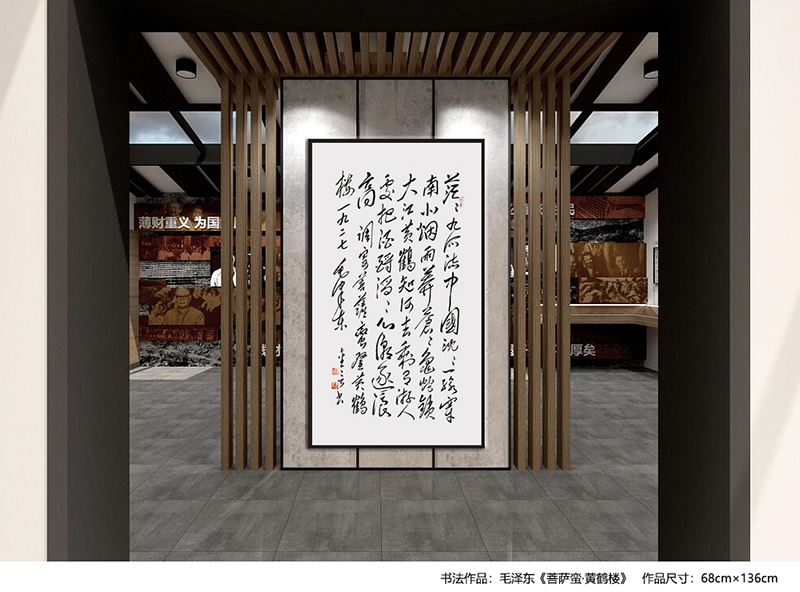 薄财重义 为国
茫〻九派流中國沈〻一线穿
南北烟雨莽蒼〻龜蛇鎖
大江黄鶴知何去剩有游人
處把酒酹滔〻心潮逐浪
高 調寄菩薩蠻登黄鶴
楼一九二七 毛泽东
厚矣
书法作品：毛泽东《菩萨蛮·黄鹤楼》 作品尺寸：68cm×136cm